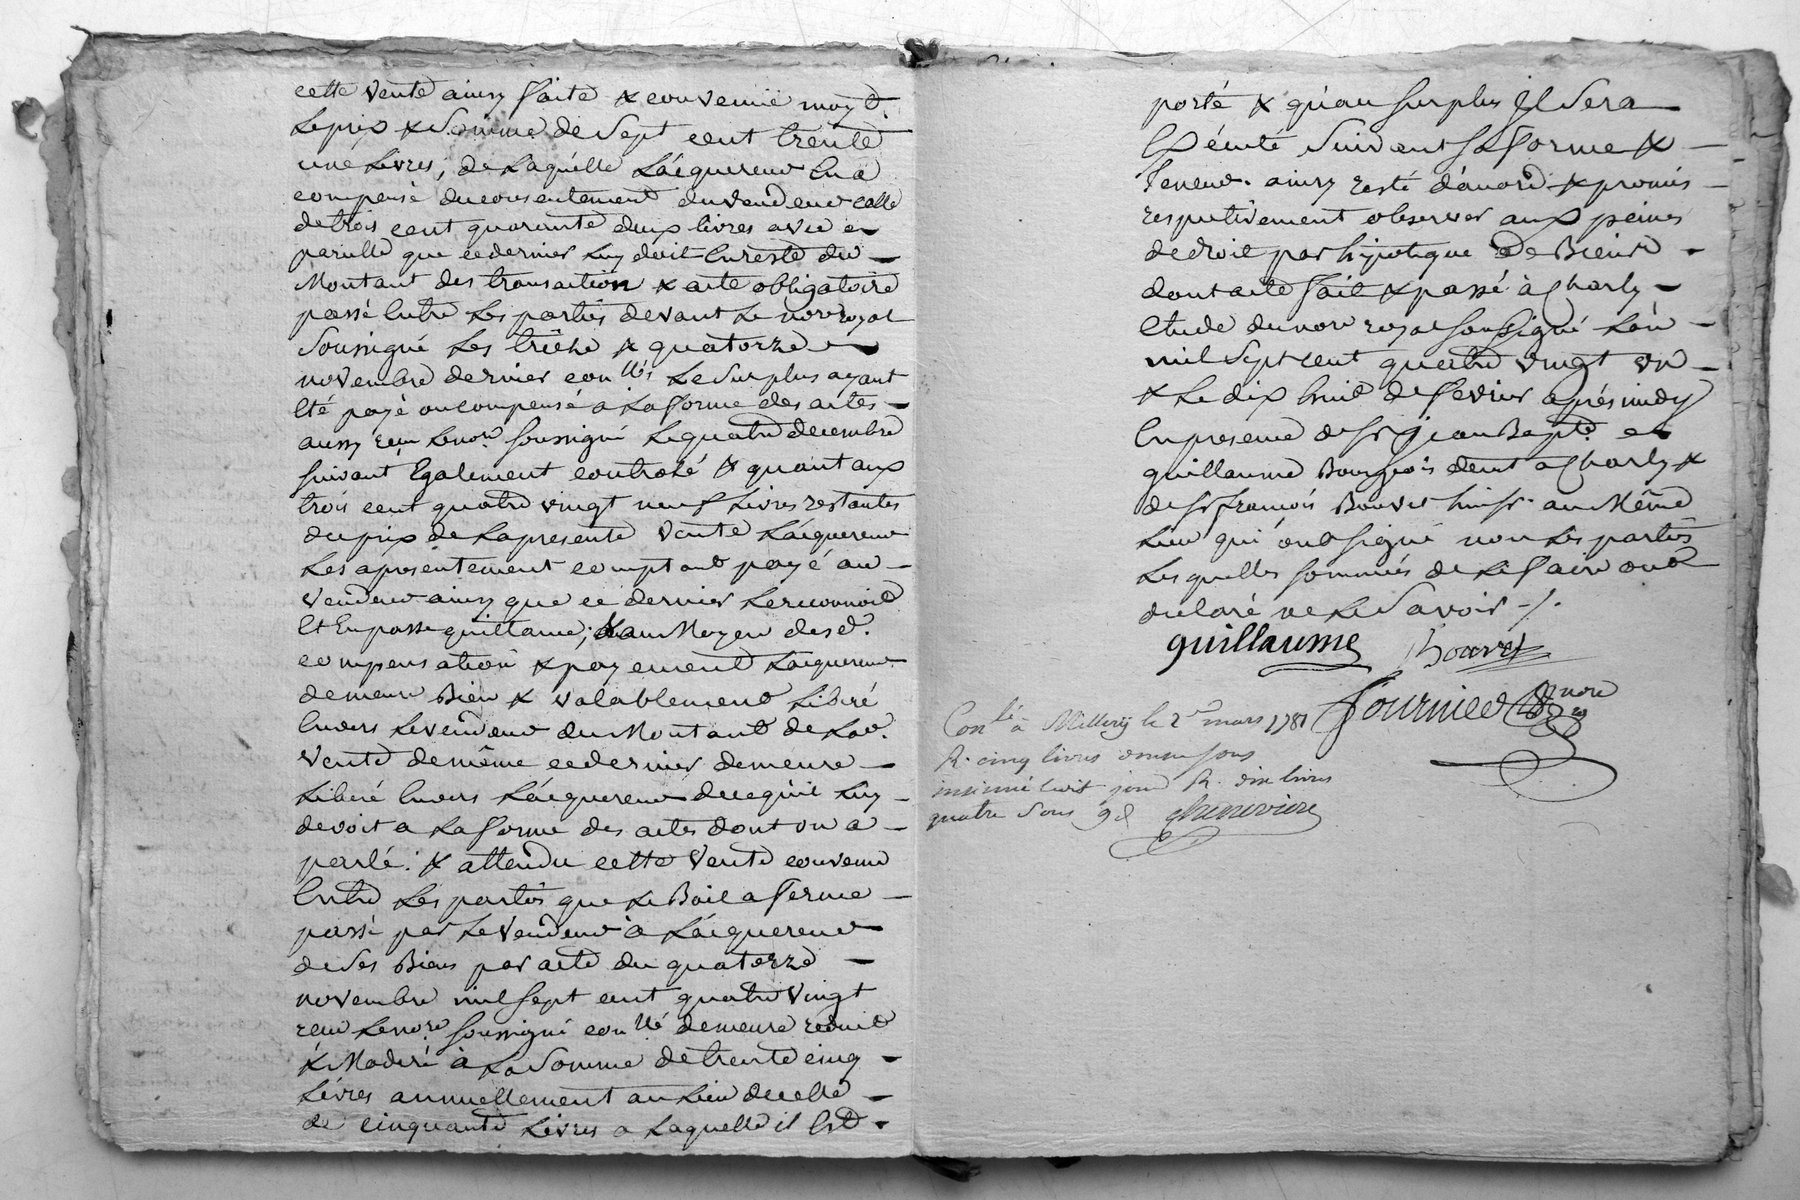 cette vente ainsy faite & convenüe moy.t
le prix & Somme de Sept cent trente
une livres, de laquelle l'acquereur en a
compensé du consentement du vendeur celle
de trois cent quarante deux livres avec
pareille que ce dernier luy doit en reste du
Montant des transaction & acte obligatoire
passé entre les parties devant le no.re royal
Soussigné les treize & quatorze
novembre dernier con.llés le surplus ayant
été payé ou compensé a la forme des actes
aussy reçu le no.re soussigné le quatre decembre
suivant Egalement controlé & quant aux
trois cent quatre vingt neuf livres restantes
du prix de la presente vente l'acquereur
les a presentement comptant payé au
vendeur ainsy que ce dernier le reconnoit
et En passe quittance; & au Moyen des d.
compensation & payement l'acquereur
demeure Bien & valablement liberé
Envers le vendeur du Montant de la d.
vente de même ce dernier demeure
liberé Envers l'acquereur de ce qu'il luy
devoit a la forme des actes dont on a
parlé: & attendu cette vente convenu
Entre les parties que le Bail a ferme
passé par le vendeur à l'acquereur
de ses Biens par acte du quatorze
novembre mil sept cent quatre vingt
reçu le no.re soussigné con.llé demeure reduit
& Moderé à la Somme de trente cinq
livres annuellement au lieu de celle
de cinquante livres a laquelle il Est
porté & qu'au surplus il Sera
Exécuté Suivant sa forme &
teneur. ainsy resté d'acord & promis
respectivement observer aux peines
de droit par hipotèque de Biens
dont acte fait & passé à Charly
etude du no.re royal soussigné l'an
mil sept cent quatre vingt un
& le dix huit de fevrier après midy
En presence de Sr jean Bapte
guillaume Bourgeois demt a Charly &
de Sr françois Bouvet huissr. au Même
lieu qui ont signé non les parties
lesquelles sommées de le faire ont
declaré ne le Savoir ./.
guillaume Bouvet
Fournier no.re
Con.lé à Millery le 2 mars 1781
R. cinq livres onze sous
insinué suivt. R. dix livres
quatre sous 9d Chenevière